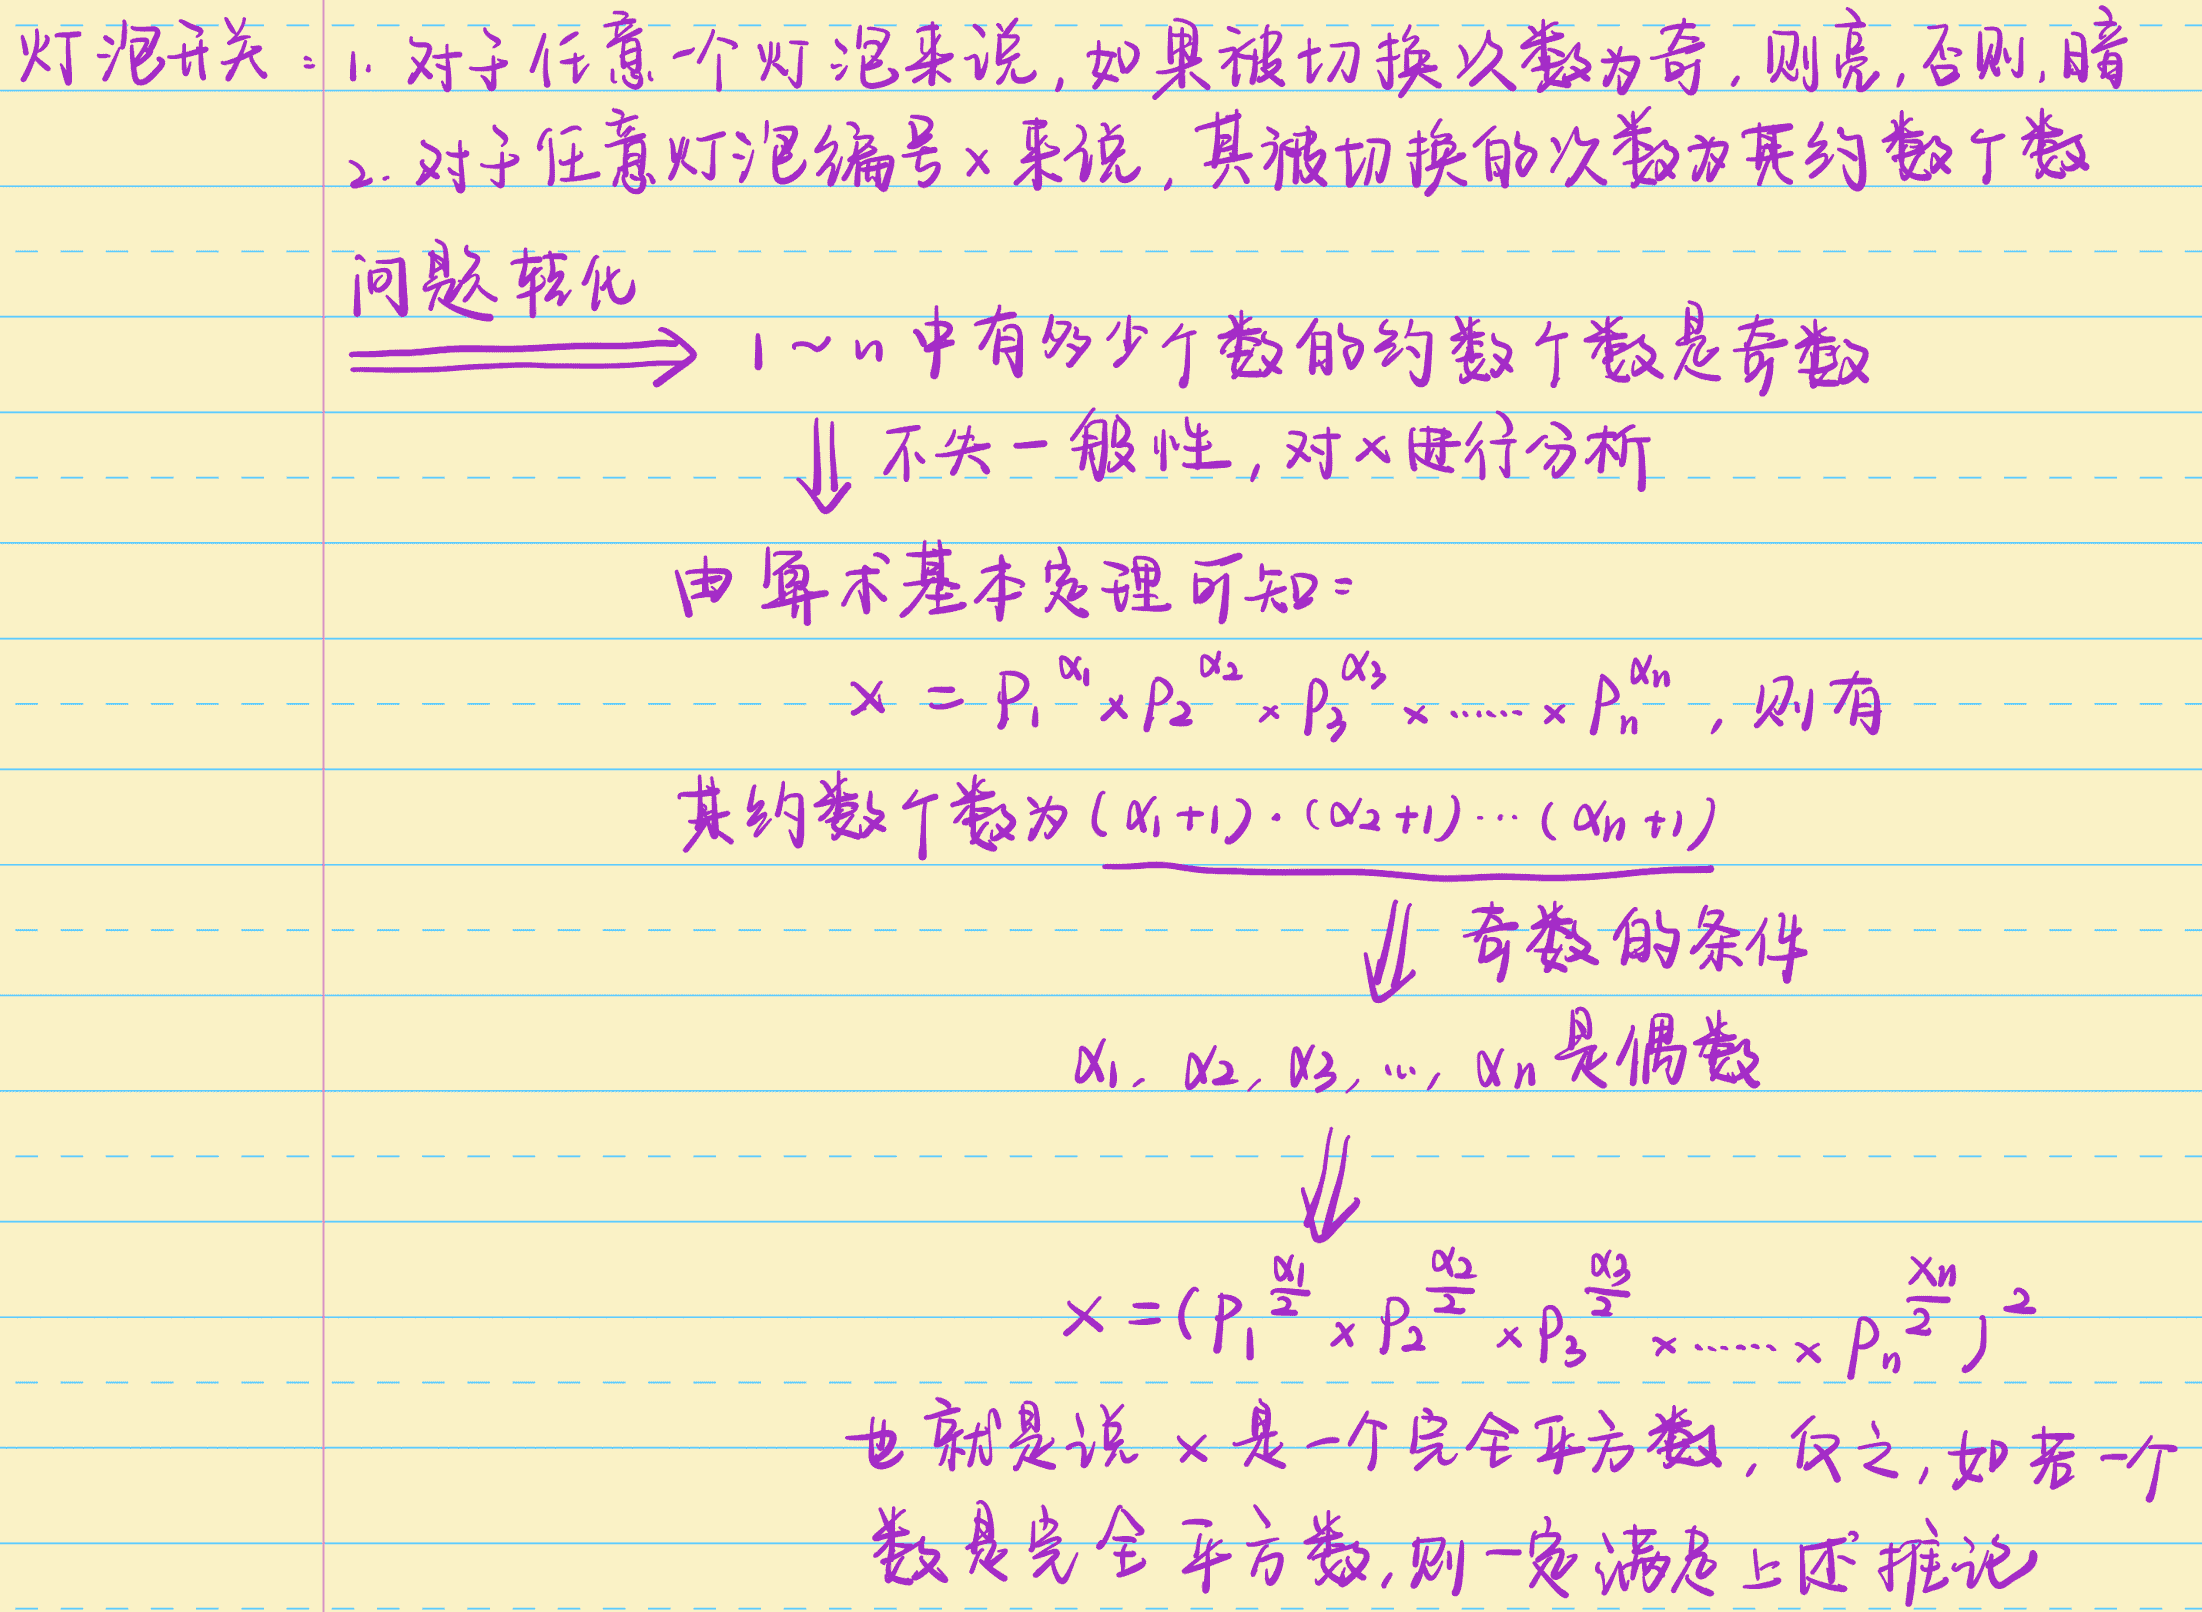 灯泡开关：1. 对于任意一个灯泡来说，如果被切换次数为奇，则亮，否则，暗
2. 对于任意灯泡编号x来说，其被切换的次数为其约数个数
问题转化
1~n中有多少个数的约数个数是奇数
不失一般性，对x进行分析
由算术基本定理可知：
x = P₁^α₁ × P₂^α₂ × P₃^α₃ × …… × Pₙ^αₙ，则有
其约数个数为(α₁+1)·(α₂+1)…(αₙ+1)
奇数的条件
α₁, α₂, α₃, …, αₙ是偶数
x = (P₁^(α₁/2) × P₂^(α₂/2) × P₃^(α₃/2) × …… × Pₙ^(xₙ/2))²
也就是说x是一个完全平方数，仅之，如若一个
数是完全平方数，则一定满足上述推论